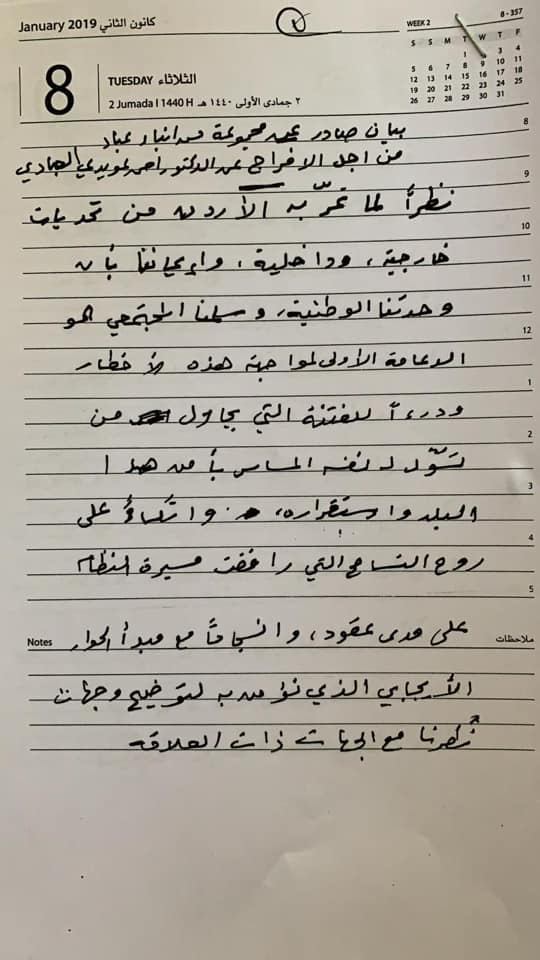 January 2019 كانون الثاني
8 - 357
WEEK 2
S S M T W T F
1 2 3 4
5 6 7 8 9 10 11
12 13 14 15 16 17 18
19 20 21 22 23 24 25
26 27 28 29 30 31
8
TUESDAY الثلاثاء
2 Jumada I 1440 H ٢ جمادى الأولى ١٤٤٠ هـ
بيان صادر عن مجموعة من ابناء عباد
من اجل الافراج عن الدكتور احمد عويدي العبادي
نظراً لما تمرّ به الأردن من تحديات
خارجية، وداخلية، وإيماننا بأن
وحدتنا الوطنية، وسلمنا المجتمعي هو
الدعامة الأولى لمواجهة هذه الأخطار
ودرءاً للفتنة التي يحاول من
تسوّل له نفسه المساس بأمن هذا
البلد واستقراره، واتكاءً على
روح التسامح التي رافقت مسيرة النظام
على مدى عقود، وانسجاماً مع مبدأ الحوار
الأيجابي الذي نؤمن به لتوضيح وجهات
نظرنا مع الجهات ذات العلاقه
8
9
10
11
12
1
2
3
4
5
Notes ملاحظات